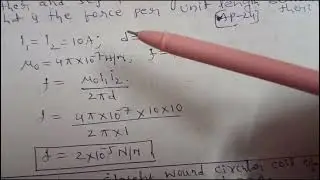 what is the force per unit length of
their
AP-24
I₁ = I₂ = 10A; d =
μ₀ = 4π×10⁻⁷ H/m, f =
f = μ₀ I₁ I₂ / 2πd
f = 4π×10⁻⁷ × 10 × 10 / 2π × 1
f = 2×10⁻⁵ N/m
wound circular coil